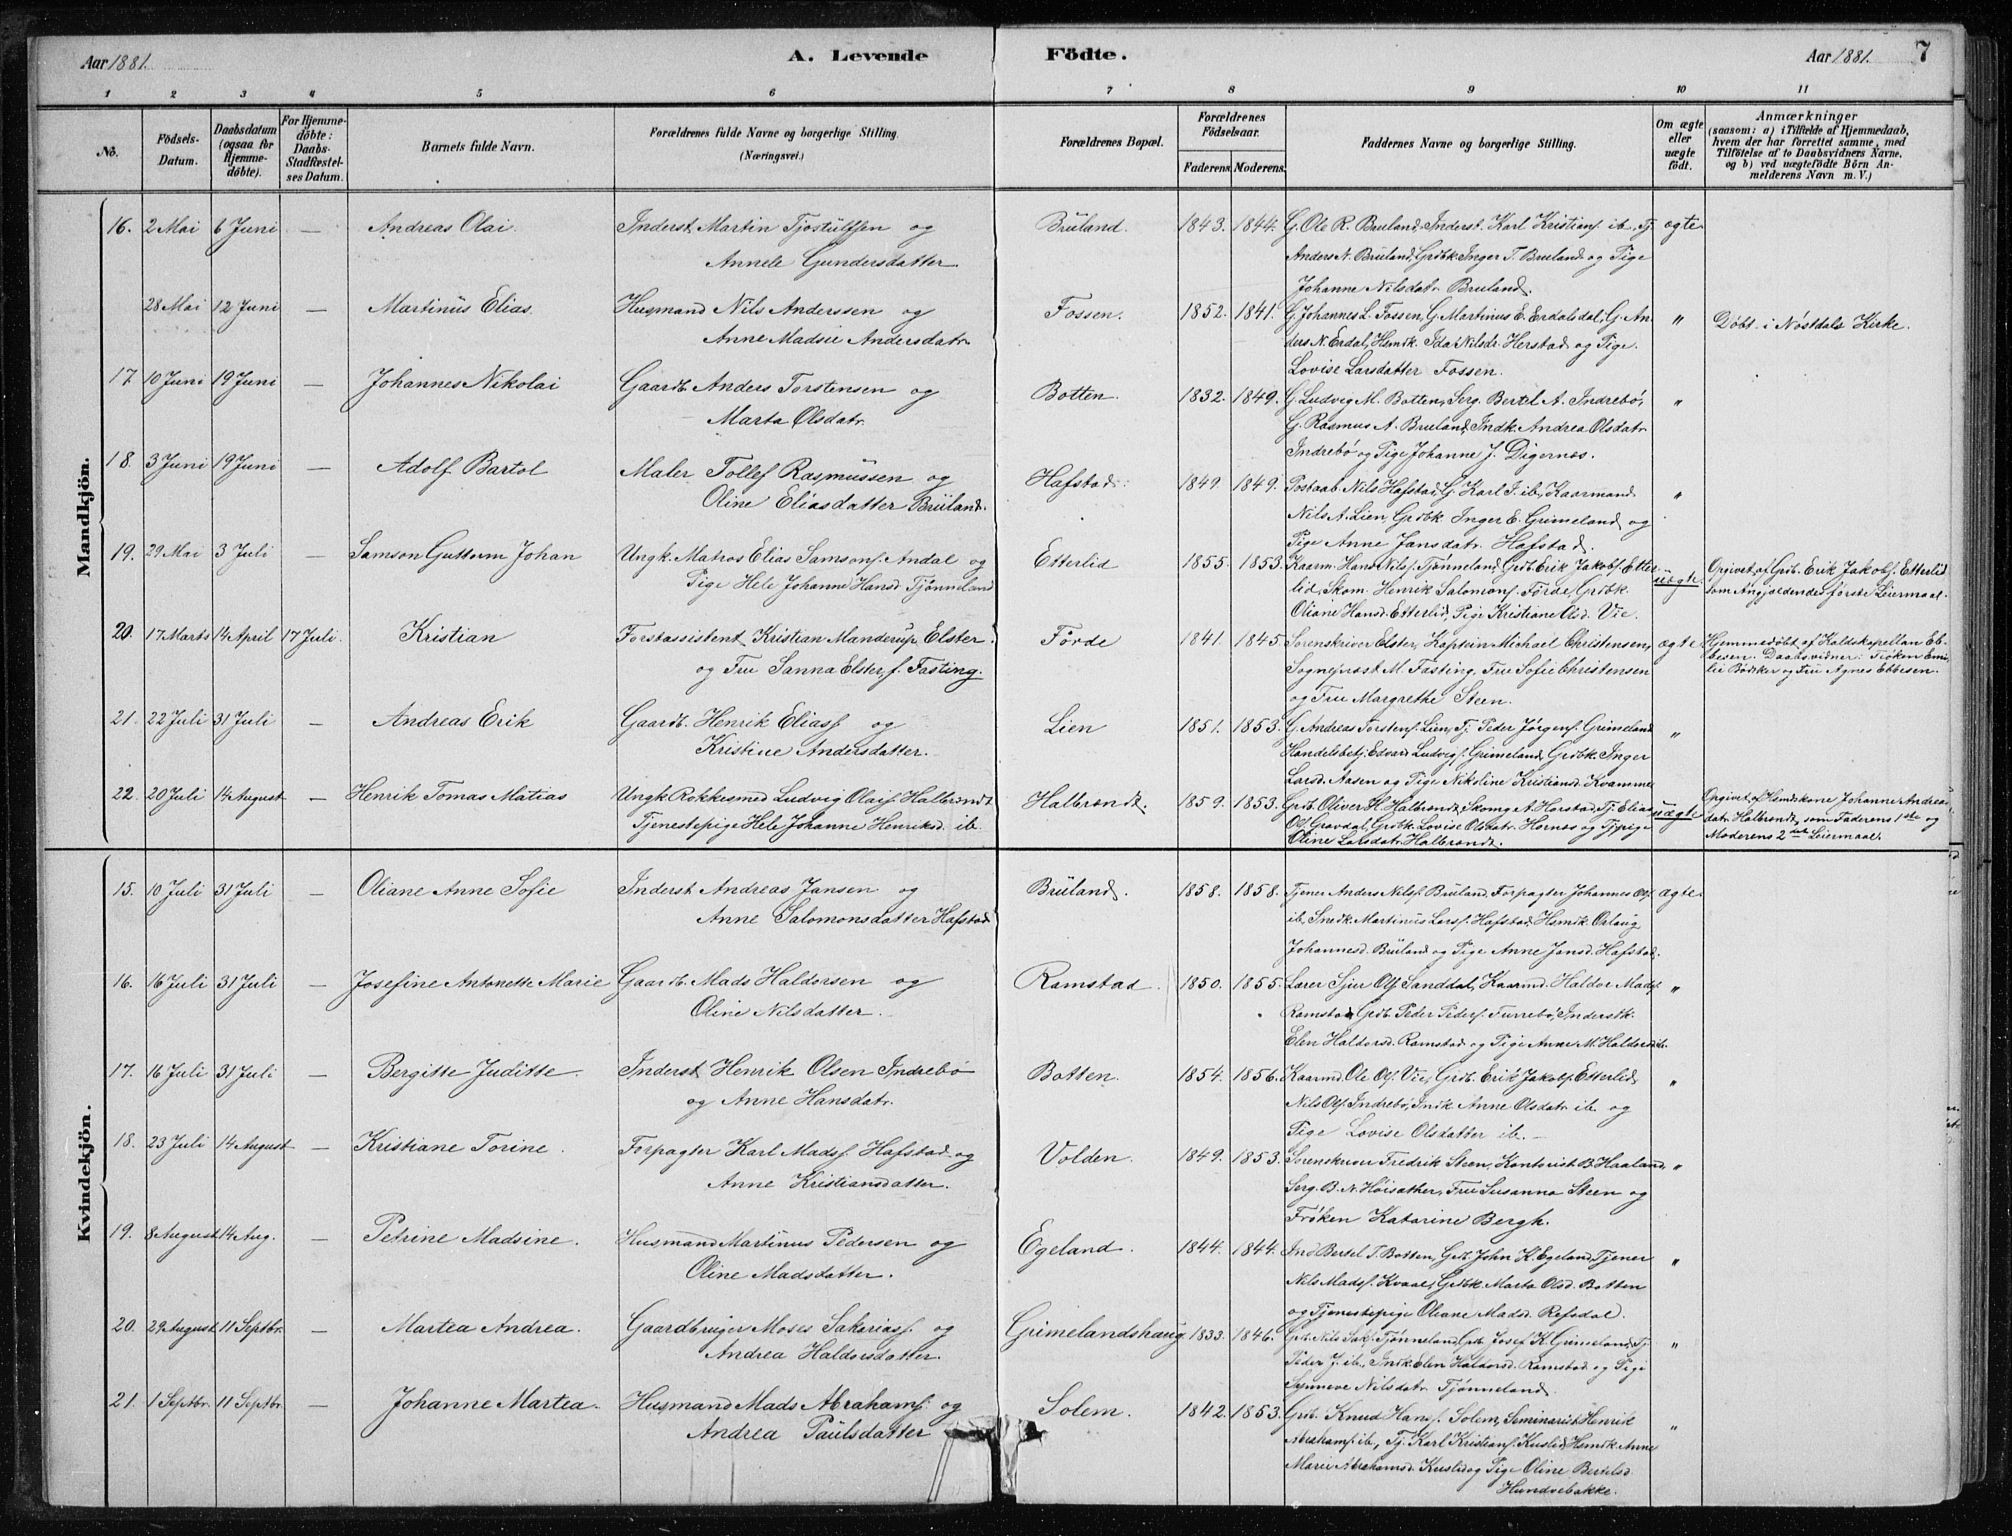 Aar 1881. A. Levende Födte. Aar 1881. 7
1 2 3 4 5 6 7 8 9 10 11
No. Födsels-Datum. Daabsdatum (ogsaa for Hjemmedöbte). For Hjemmedöbte: Daabs-Stadfæstelses Datum. Barnets fulde Navn. Forældrenes fulde Navne og borgerlige Stilling. (Næringsvei.) Forældrenes Bopæl. Forældrenes Födselsaar. Faderens Moderens. Faddernes Navne og borgerlige Stilling. Om ægte eller uægte födt. Anmærkninger (saasom: a) i Tilfælde af Hjemmedaab, hvem der har forrettet samme, med Tilföielse af to Daabsvidners Navne, og b) ved uægtefödte Börn Anmelderens Navn m. V.)
Mandkjön.
16. 2 Mai 6 Juni — Andreas Olai. Inderst Martin Tjostulfsen og Bruland. 1843. 1844. G. Ole R. Bruland, Inderst. Karl Kristians. ib., Tj. ægte
Annele Gundersdatter. Anders N. Bruland, Grdbk Inger T. Bruland og Pige
Johanne Nilsdatr. Bruland.
28 Mai 12 Juni — Martinus Elias. Husmand Nils Anderssen og Fossen. 1852. 1841. G. Johannes L. Fossen, G. Martinus E. Erdalsdal, G. An- " Döbt i Nöstdals Kirke.
Anne Madsie Andersdatr. ders N. Erdal, Hsmdk. Ida Nilsdr. Herstad og Pige
Lovise Larsdatter Fossen.
17 10 Juni 19 Juni — Johannes Nikolai Gaardb. Anders Torstensen og Botten. 1832. 1849. G. Ludvig M. Botten, Serg. Bertel A. Indrebö, "
Marta Olsdatr. G. Rasmus A. Bruland, Indk. Andrea Olsdatr
Indrebö og Pige Johanne J. Digernæs.
18. 3 Juni 19 Juni — Adolf Bartol Maler Tollef Rasmussen og Hafstad. 1849. 1849. Postaab. Nils Hafstad, G. Karl J. ib., Kaarmand "
Oline Eliasdatter Bruland. Nils A. Lien, Grdbk Inger E. Grimeland og
Pige Anne Jansdatr. Hafstad.
19. 29 Mai 3 Juli — Samson Guttorm Johan Ungk. Matros Elias Samsons. Andal og Etterlid 1855. 1853. Kaarm. Hans Nils. Tjönneland, Grdb. Erik Jakobs. Etter- uægte. Opgivet af Grdb. Erik Jakobs. Etterlid
Pige Hele Johanne Hansd. Tjönneland lid, Skom. Henrik Salomons. Förde, Grdbk som Angjældendes förste Leiermaal.
Oliane Hansd. Etterlid, Pige Kristiane Olsd. Vie.
20. 17 Marts 14 April 17 Juli. Kristian Forstassistent Kristian Manderup Elster Förde 1841. 1845 Sorenskriver Elster, Kaptein Michael Christensen, ægte Hjemmedöbt af Kaldskapellan Eb-
og Fru Sanna Elster, f. Fasting. Sogneprest M. Fasting, Fru Sofie Christensen besen. Daabsvidner: Fröken Emi-
og Fru Margrethe Steen. lie Bödtker og Fru Agnes Ebbesen.
21. 22 Juli 31 Juli — Andreas Erik Gaardb. Henrik Eliass. og Lien 1851. 1853. G. Andreas Torstens. Lien, Tj. Peder Jörgens. Grimeland "
Kristine Andersdatter. Handelsbetj. Edvard Ludvigs. Grimeland, Grdbk Inger
Larsd. Aasen og Pige Nikoline Kristiansd. Kvamme
22. 20 Juli 14 August — Henrik Tomas Matias Ungk. Rokkesmed Ludvig Olais. Halbrendt Halbrendt. 1859. 1853. Grdb. Oliver H. Halbrendt, Skomg. A. Horstad, Tj. Elias uægte Opgivet af Hsmdskone Johanne Andreas-
Tjenestepige Hele Johanne Henriksd. ib. Ols. Gravdal, Grdbk. Lovise Olsdatr. Hornæs og Tjpige datr. Halbrendt, som Faderens 1ste og
Oline Larsdatr. Halbrendt. Moderens 2det Leiermaal.
Kvindekjön.
15. 10 Juli 31 Juli — Oliane Anne Sofie Inderst Andreas Jansen og Bruland. 1858. 1858. Tjener Anders Nils. Bruland, Forpagter Johannes Ols. ægte
Anne Salomonsdatter Hafstad ib., Snedk. Martinus Lars. Hafstad, Hsmdk. Orlaug
Johannesd. Bruland og Pige Anne Jansd. Hafstad.
16. 16 Juli 31 Juli — Josefine Antonette Marie Gaardb. Mads Haldorsen og Ramstad. 1850. 1855. Lærer Sjur Ols. Sanddal, Kaarmd. Haldor Mads. "
Oline Nilsdatter. Ramstad, Grdb. Peder Peders. Furrebö, Inderstk.
Elen Haldorsd. Ramstad og Pige Anne M. Haldorsd. ib.
17. 16 Juli 31 Juli — Bergitte Juditte. Inderst Henrik Olsen Indrebö Botten. 1854. 1856. Kaarmd. Ole Ols. Vie, Grdb. Erik Jakobs. Etterlid, "
og Anne Hansdatr. Nils Ols. Indrebö, Indk. Anne Olsdatr ib. og
Pige Lovise Olsdatter ib.
18. 23 Juli 14 August — Kristiane Torine. Forpagter Karl Mads. Hafstad og Volden. 1849. 1853. Sorenskriver Fredrik Steen, Kontorist B. Haaland, "
Anne Kristiansdatter. Serg. B. N. Höisæther, Fru Susanna Steen og
Fröken Katarine Bergh.
19. 8 August 14 Aug. — Petrine Madsine. Husmand Martinus Pedersen og Egeland. 1844. 1844. Ind. Bertel T. Botten, G. John K. Egeland, Tjener "
Oline Madsdatter. Nils Mads. Kvaal, Grdbk Marta Olsd. Botten
og Tjenestepige Oliane Madsd. Refsdal.
20. 29 August 11 Septbr. — Martea Andrea. Gaardbruger Moses Sakarias. og Grimelandshaug. 1833. 1846. Grb. Nils Sak. Tjönneland, Grb. Josef K. Grimeland, Tj. "
Andrea Haldorsdatter. Peder J. ib., Indk Elen Haldorsd. Ramstad og Pige
Synneve Nilsdatr. Tjönneland.
21. 1 Septbr. 11 Septbr. — Johanne Martea. Husmand Mads Abrahams. og Solem. 1842. 1853. Grb. Knud Hans. Solem, Seminarist Henrik "
Andrea Paulsdatter Abrahams. ib., Tj. Karl Kristians. Kuslid, Hsmdk Anne
Marie Abrahamsd. Kuslid og Pige Oline Bertelsd.
Hundvebakke.